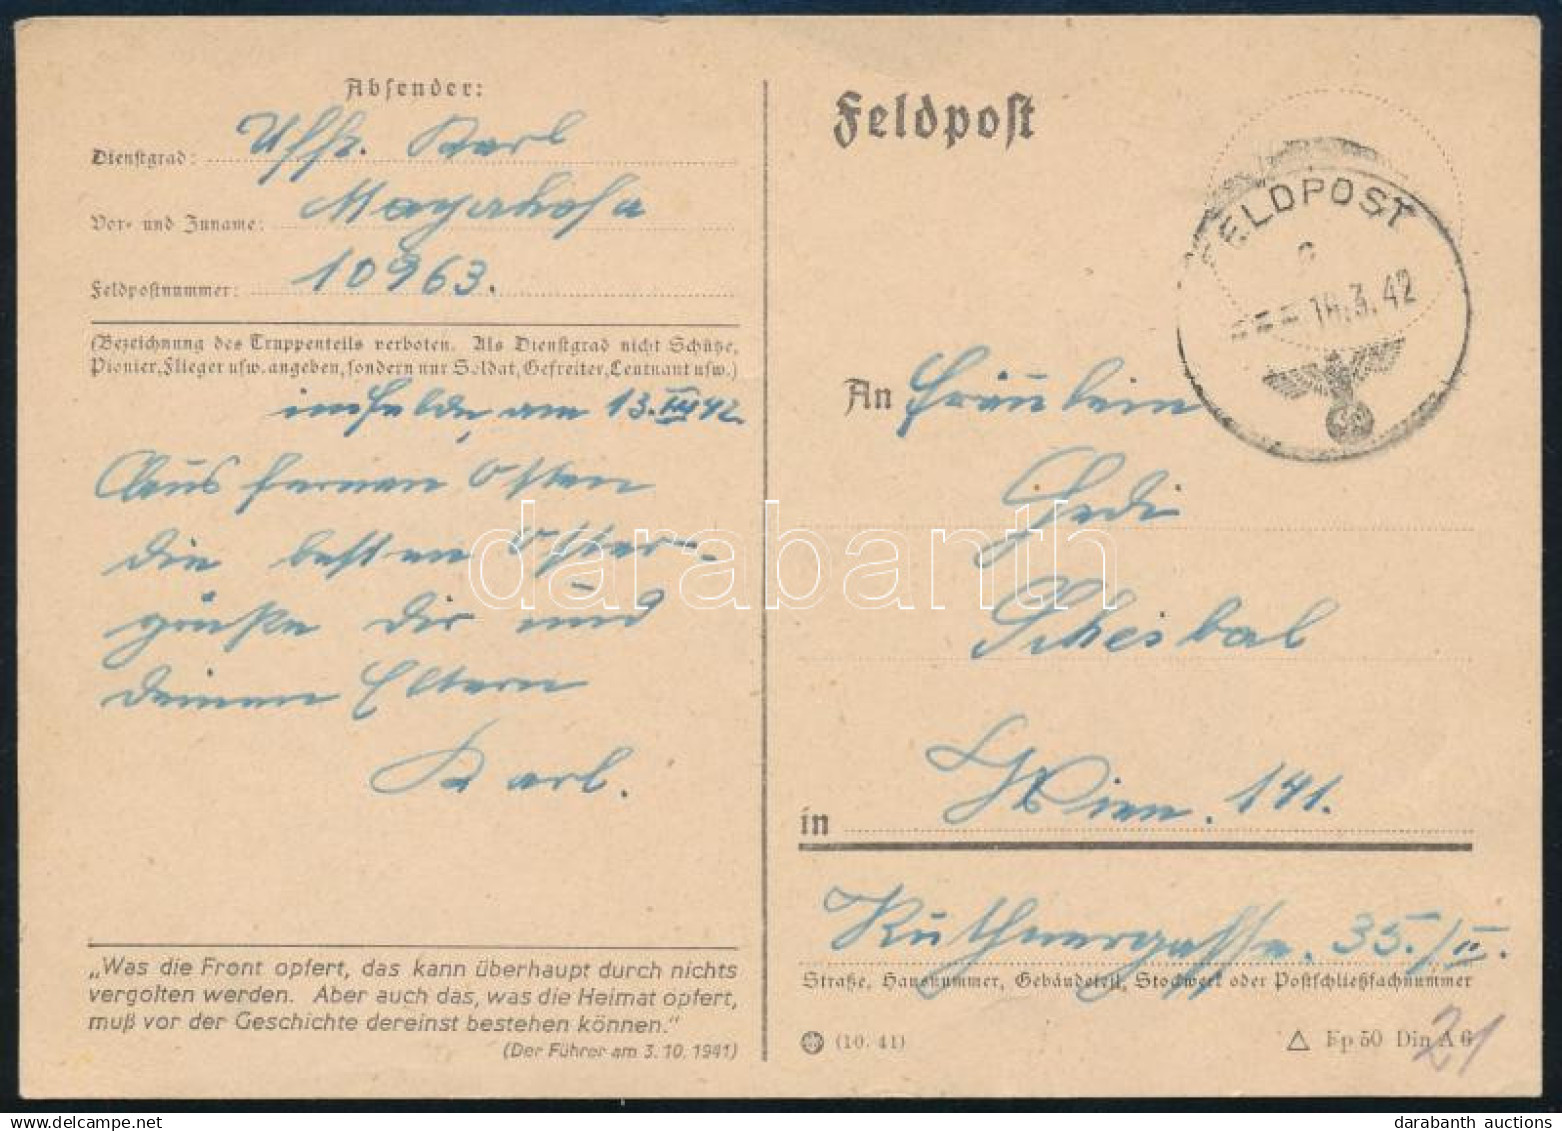 Absender:
Dienstgrad: Uffz. Karl
Vor- und Zuname: Mayerhofer
Feldpostnummer: 10963.
(Bezeichnung des Truppenteils verboten. Als Dienstgrad nicht Schütze,
Pionier, Flieger usw. angeben, sondern nur Soldat, Gefreiter, Leutnant usw.)
im Felde, am 13. III 42.
Aus fernen Osten
die besten Oster-
grüße dir und
deinen Eltern
Karl.
„Was die Front opfert, das kann überhaupt durch nichts
vergolten werden. Aber auch das, was die Heimat opfert,
muß vor der Geschichte dereinst bestehen können.“
(Der Führer am 3. 10. 1941)
Feldpost
FELDPOST
c
18.3.42
An Fräulein
Hedi
Scheibal
in Wien. 141.
Ruthnergasse. 35./II.
Straße, Hausnummer, Gebäudeteil, Stockwerk oder Postschließfachnummer
(10. 41)
Fp 50 Din A 6
21
darabanth
darabanth auctions